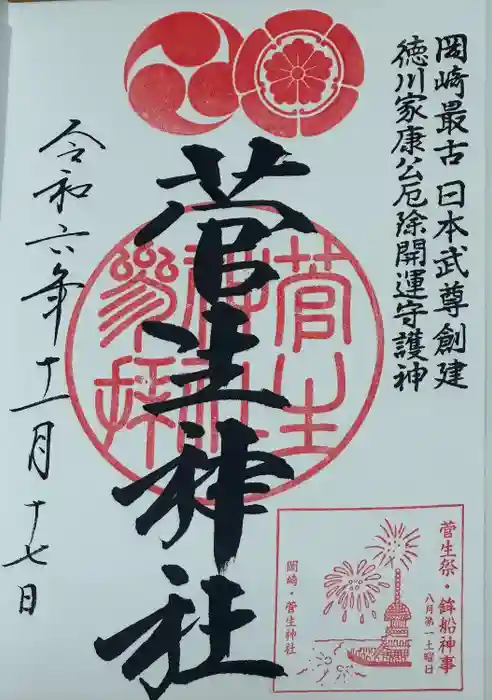 岡崎最古 日本武尊創建
徳川家康公厄除開運守護神
菅生神社
菅生
神社
参拝
令和六年十一月十七日
菅生祭・鉾船神事
八月第一土曜日
岡崎・菅生神社